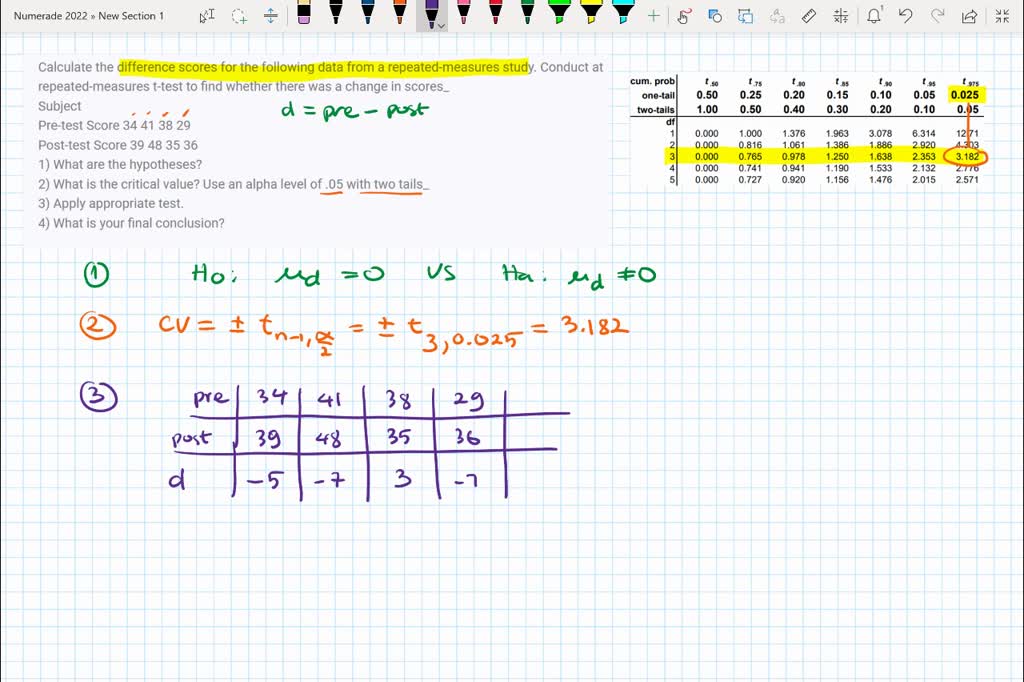 Numerade 2022 » New Section 1
Calculate the difference scores for the following data from a repeated-measures study. Conduct at
repeated-measures t-test to find whether there was a change in scores_
Subject
d = pre - post
Pre-test Score 34 41 38 29
Post-test Score 39 48 35 36
1) What are the hypotheses?
2) What is the critical value? Use an alpha level of .05 with two tails_
3) Apply appropriate test.
4) What is your final conclusion?
cum. prob t.50 t.75 t.80 t.85 t.90 t.95 t.975
one-tail 0.50 0.25 0.20 0.15 0.10 0.05 0.025
two-tails 1.00 0.50 0.40 0.30 0.20 0.10 0.05
df
1 0.000 1.000 1.376 1.963 3.078 6.314 12.71
2 0.000 0.816 1.061 1.386 1.886 2.920 4.303
3 0.000 0.765 0.978 1.250 1.638 2.353 3.182
4 0.000 0.741 0.941 1.190 1.533 2.132 2.776
5 0.000 0.727 0.920 1.156 1.476 2.015 2.571
① Ho: μd = 0 vs Ha: μd ≠ 0
② CV = ± t n-1, α/2 = ± t 3, 0.025 = 3.182
③ pre 34 41 38 29
post 39 48 35 36
d -5 -7 3 -7